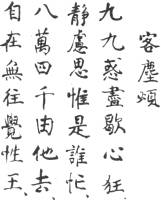 客塵煩
九九惑盡歇心狂、
靜慮思惟是誰忙、
八萬四千由他去、
自在無往覺性王、